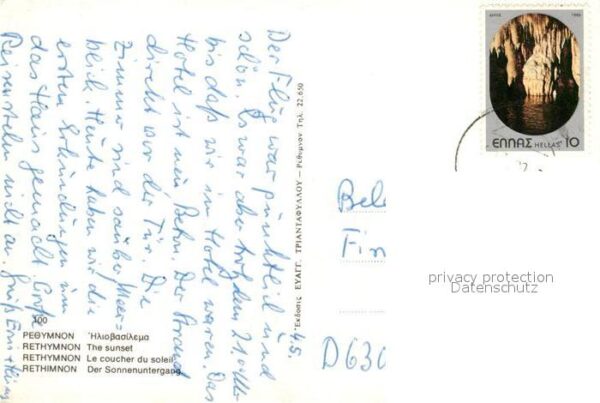 4.5.
Der Flug war pünktlich und
schön. Es war aber trotzdem 21.00 Uhr
bis daß wir im Hotel waren. Das
Hotel ist mein Bohn. Der Strand
direkt vor der Tür. Die
Zimmer sind sauber Meer=
blick. Heute haben wir die
ersten Erkundungen um
das Haus gemacht.
Reiseurteln nicht an. Gruß
100
ΡΕΘΥΜΝΟΝ Ἡλιοβασίλεμα
RETHYMNON The sunset
RETHYMNON Le coucher du soleil
RETHIMNON Der Sonnenuntergang
Ἔκδοσις ΕΥΑΓΓ. ΤΡΙΑΝΤΑΦΥΛΛΟΥ – Ρέθυμνον Τηλ. 22.650
1980
ΕΛΛΑΣ HELLAS 10
Bele
Fin
D630
privacy protection
Datenschutz